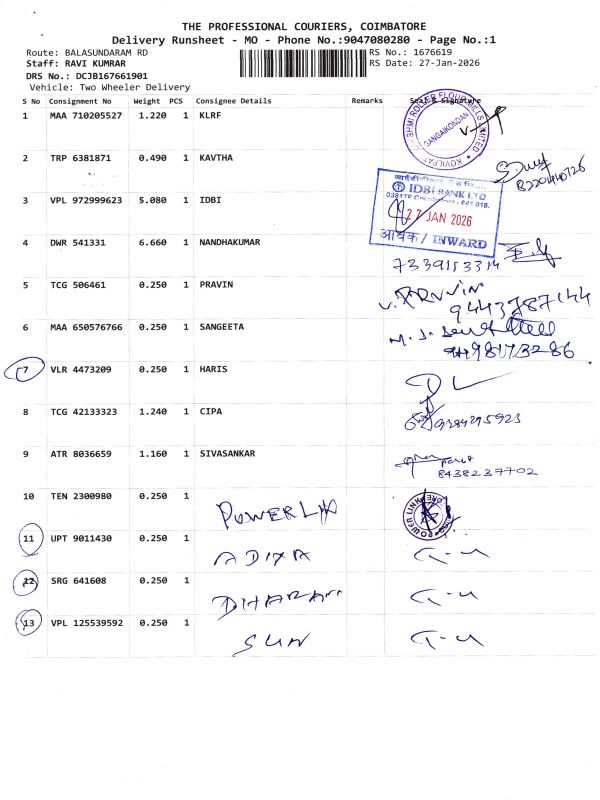 THE PROFESSIONAL COURIERS, COIMBATORE
Delivery Runsheet - MO - Phone No.:9047080280 - Page No.:1
Route: BALASUNDARAM RD
RS No.: 1676619
Staff: RAVI KUMRAR
RS Date: 27-Jan-2026
DRS No.: DCJB167661901
Vehicle: Two Wheeler Delivery
S No Consignment No Weight PCS Consignee Details Remarks Seal & Signature
1 MAA 710205527 1.220 1 KLRF
GANGAIKONDAN
2 TRP 6381871 0.490 1 KAVTHA
8220440726
3 VPL 972999623 5.080 1 IDBI
IDBI BANK LTD
27 JAN 2026
आवक / INWARD
4 DWR 541331 6.660 1 NANDHAKUMAR
7339153314
5 TCG 506461 0.250 1 PRAVIN
9443787144
6 MAA 650576766 0.250 1 SANGEETA
7 VLR 4473209 0.250 1 HARIS
8 TCG 42133323 1.240 1 CIPA
9384295923
9 ATR 8036659 1.160 1 SIVASANKAR
8438237702
10 TEN 2300980 0.250 1 POWERLIN
POWER LINK
11 UPT 9011430 0.250 1 ADIYA
12 SRG 641608 0.250 1 DHARANI
13 VPL 125539592 0.250 1 SUN